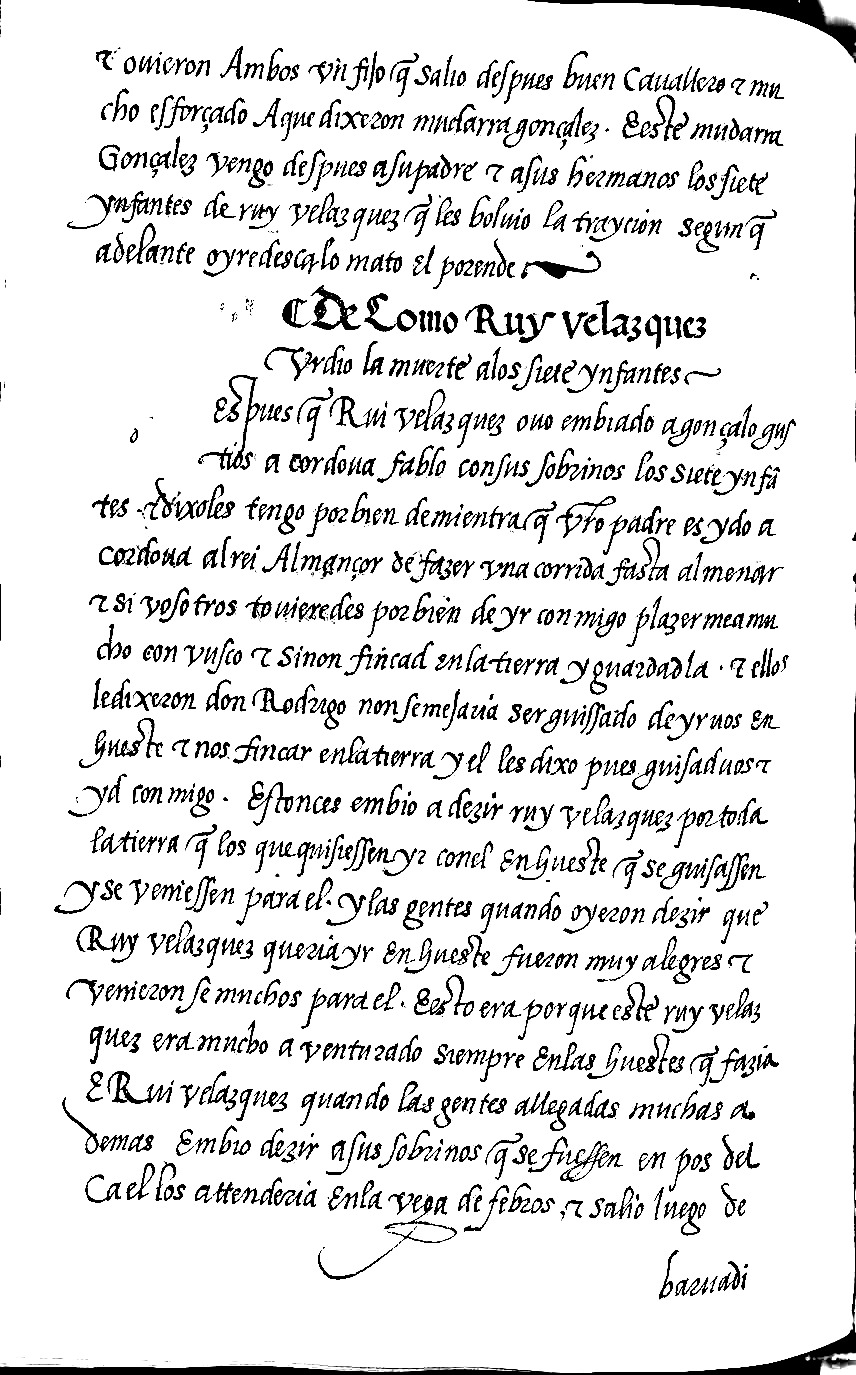 ⁊ ouieron Ambos vn̄ fijo q̄ salio despues buen Cauallero ⁊ mu
cho esforçado Aque dixeron mudarra gonçalez. E este mudarra
Gonçalez vengo despues a su padre ⁊ a sus hermanos los siete
ynfantes de ruy velazquez q̄ les boluio la traycion segun q̄
adelante oyredes ca lo mato el porende
¶ De Como Ruy velazquez
Vrdio la muerte a los siete ynfantes
Espues q̄ Rui velazquez ouo embiado a gonçalo gus
tios a cordoua fablo con sus sobrinos los siete ynfā
tes ⁊ dixoles tengo por bien demientra q̄ vr̄o padre es ydo a
cordoua al rei Almançor de fazer vna corrida fasta almenar
⁊ si vosotros touieredes por bien de yr con migo plazer me a mu
cho con vusco ⁊ sinon fincad en la tierra y guardadla. ⁊ ellos
le dixeron don Rodrigo non semejaua ser guissado de yr uos en
hueste ⁊ nos fincar en la tierra y el les dixo pues guisad uos ⁊
yd con migo. Estonces embio a dezir ruy velazquez por toda
la tierra q̄ los que quisiessen yr con el en hueste q̄ se guisassen
y se veniessen para el. y las gentes quando oyeron dezir que
Ruy velazquez queria yr en hueste fueron muy alegres ⁊
venieron se muchos para el. E esto era por que este ruy velaz
quez era mucho a venturado siempre en las huestes q̄ fazia
E Rui velazquez quando las gentes allegadas muchas a
demas Embio dezir a sus sobrinos q̄ se fuessen en pos del
Ca el los attenderia en la vega de febros, ⁊ salio luego de
baruadi